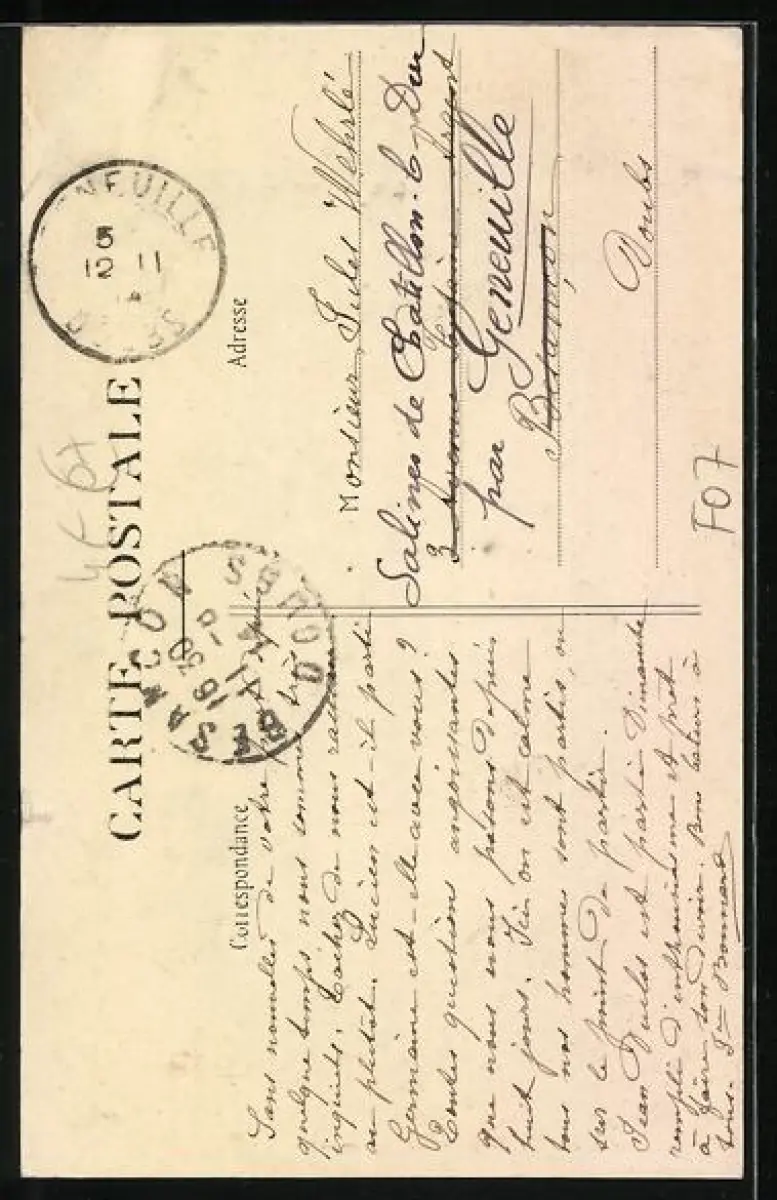 CARTE POSTALE
Correspondance
Adresse
Sans nouvelles de votre part depuis
quelque temps nous sommes très
inquiets. Tachez de nous rassurer
au plutôt. Lucien est-il parti
Germaine est-elle avec vous?
Toutes questions angoissantes
que nous nous posons depuis
huit jours. Ici on est calme
tous nos hommes sont partis, ou
sur le point de partir.
Jean est parti dimanche
rempli d'enthousiasme et prêt
à faire son devoir. Bons baisers à
tous. Bonnard
Monsieur Jules Wehrlé
Salines de Chatillon-le-Duc
3 Avenue
par Geneuille
Besançon
Doubs
F07
GENEUILLE
5
12 11
BESANÇON
16 30
DOUBS